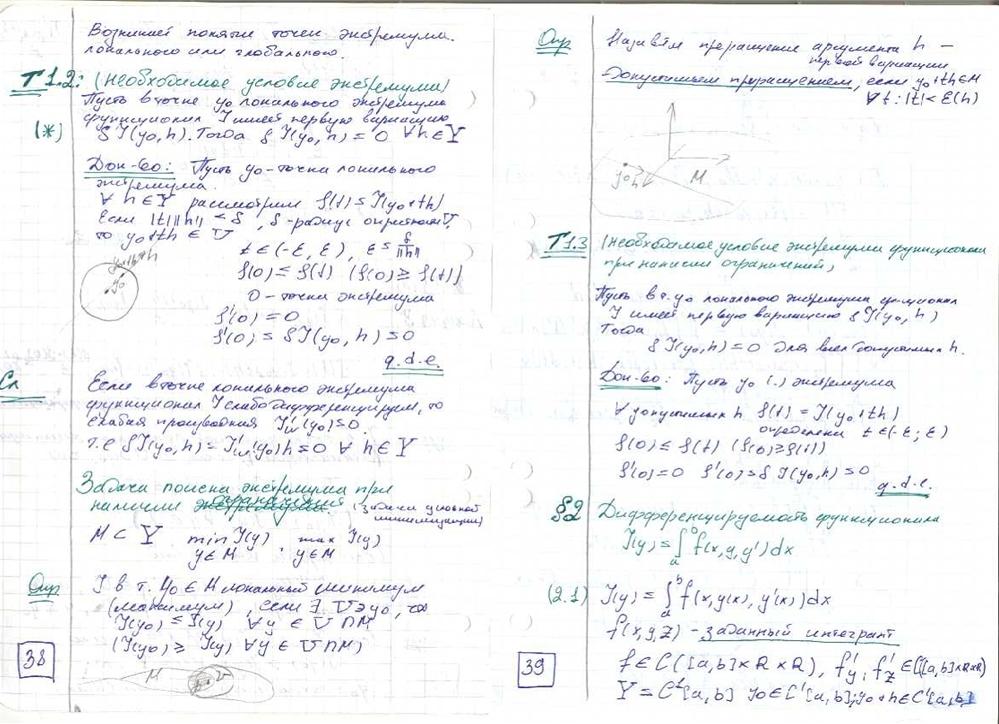 Возникает понятие точек экстремума.
локального или глобального.
Т 1.2: (необходимое условие экстремума)
Пусть в точке y₀ локального экстремума
функционал J имеет первую вариацию
(*) δJ(y₀,h). Тогда δJ(y₀,h) = 0 ∀h∈Y
Док-во: Пусть y₀ - точка локального
экстремума.
∀ h∈Y рассмотрим f(t) = J(y₀+th)
Если |t|‖h‖ < δ, δ-радиус окрестности V,
то y₀+th ∈ V
t∈(-ε, ε), ε = δ/‖h‖
y₀+th
y₀
f(0) ≤ f(t) (f(0) ≥ f(t))
0 - точка экстремума
f'(0) = 0
f'(0) = δJ(y₀,h) = 0
q.d.e.
Сл Если в точке локального экстремума
функционал J слабо дифференцируем, то
слабая производная J'w(y₀)=0
т.е δJ(y₀,h) = J'w(y₀)h = 0 ∀ h∈Y
Задача поиска экстремума при
наличии ограничений (задача условной
минимизации)
M ⊂ Y min J(y) , max J(y)
y∈M y∈M
Опр J в т. y₀∈M локальный минимум
(максимум), если ∃ V∋y₀, что
J(y₀) ≤ J(y) ∀y ∈ V∩M
(J(y₀) ≥ J(y) ∀y ∈ V∩M)
M
38
Опр Назовём приращение аргумента h —
первой вариации
допустимым приращением, если y₀+th∈M
∀t: |t|<ε(h)
y₀ h M
Т 1.3 (необходимое условие экстремума функционала
при наличии ограничений)
Пусть в т. y₀ локального экстремума функционал
J имеет первую вариацию δJ(y₀,h)
Тогда
δJ(y₀,h)=0 для всех допустимых h.
Док-во: Пусть y₀ (.) экстремума
∀ допустимых h f(t) = J(y₀+th)
определена t∈(-ε;ε)
f(0) ≤ f(t) (f(0)≥f(t))
f'(0)=0 f'(0)=δJ(y₀,h)=0
q.d.e.
§2 Дифференцируемость функционала
J(y) = ∫ₐᵇ f(x,y,y')dx
(2.1) J(y) = ∫ₐᵇ f(x,y(x),y'(x))dx
f(x,y,z) - заданный интегрант
f∈C([a,b]×R×R), f'y, f'z ∈C([a,b]×R×R)
Y = C¹[a,b] y₀∈C¹[a,b]; y₀+h∈C¹[a,b]